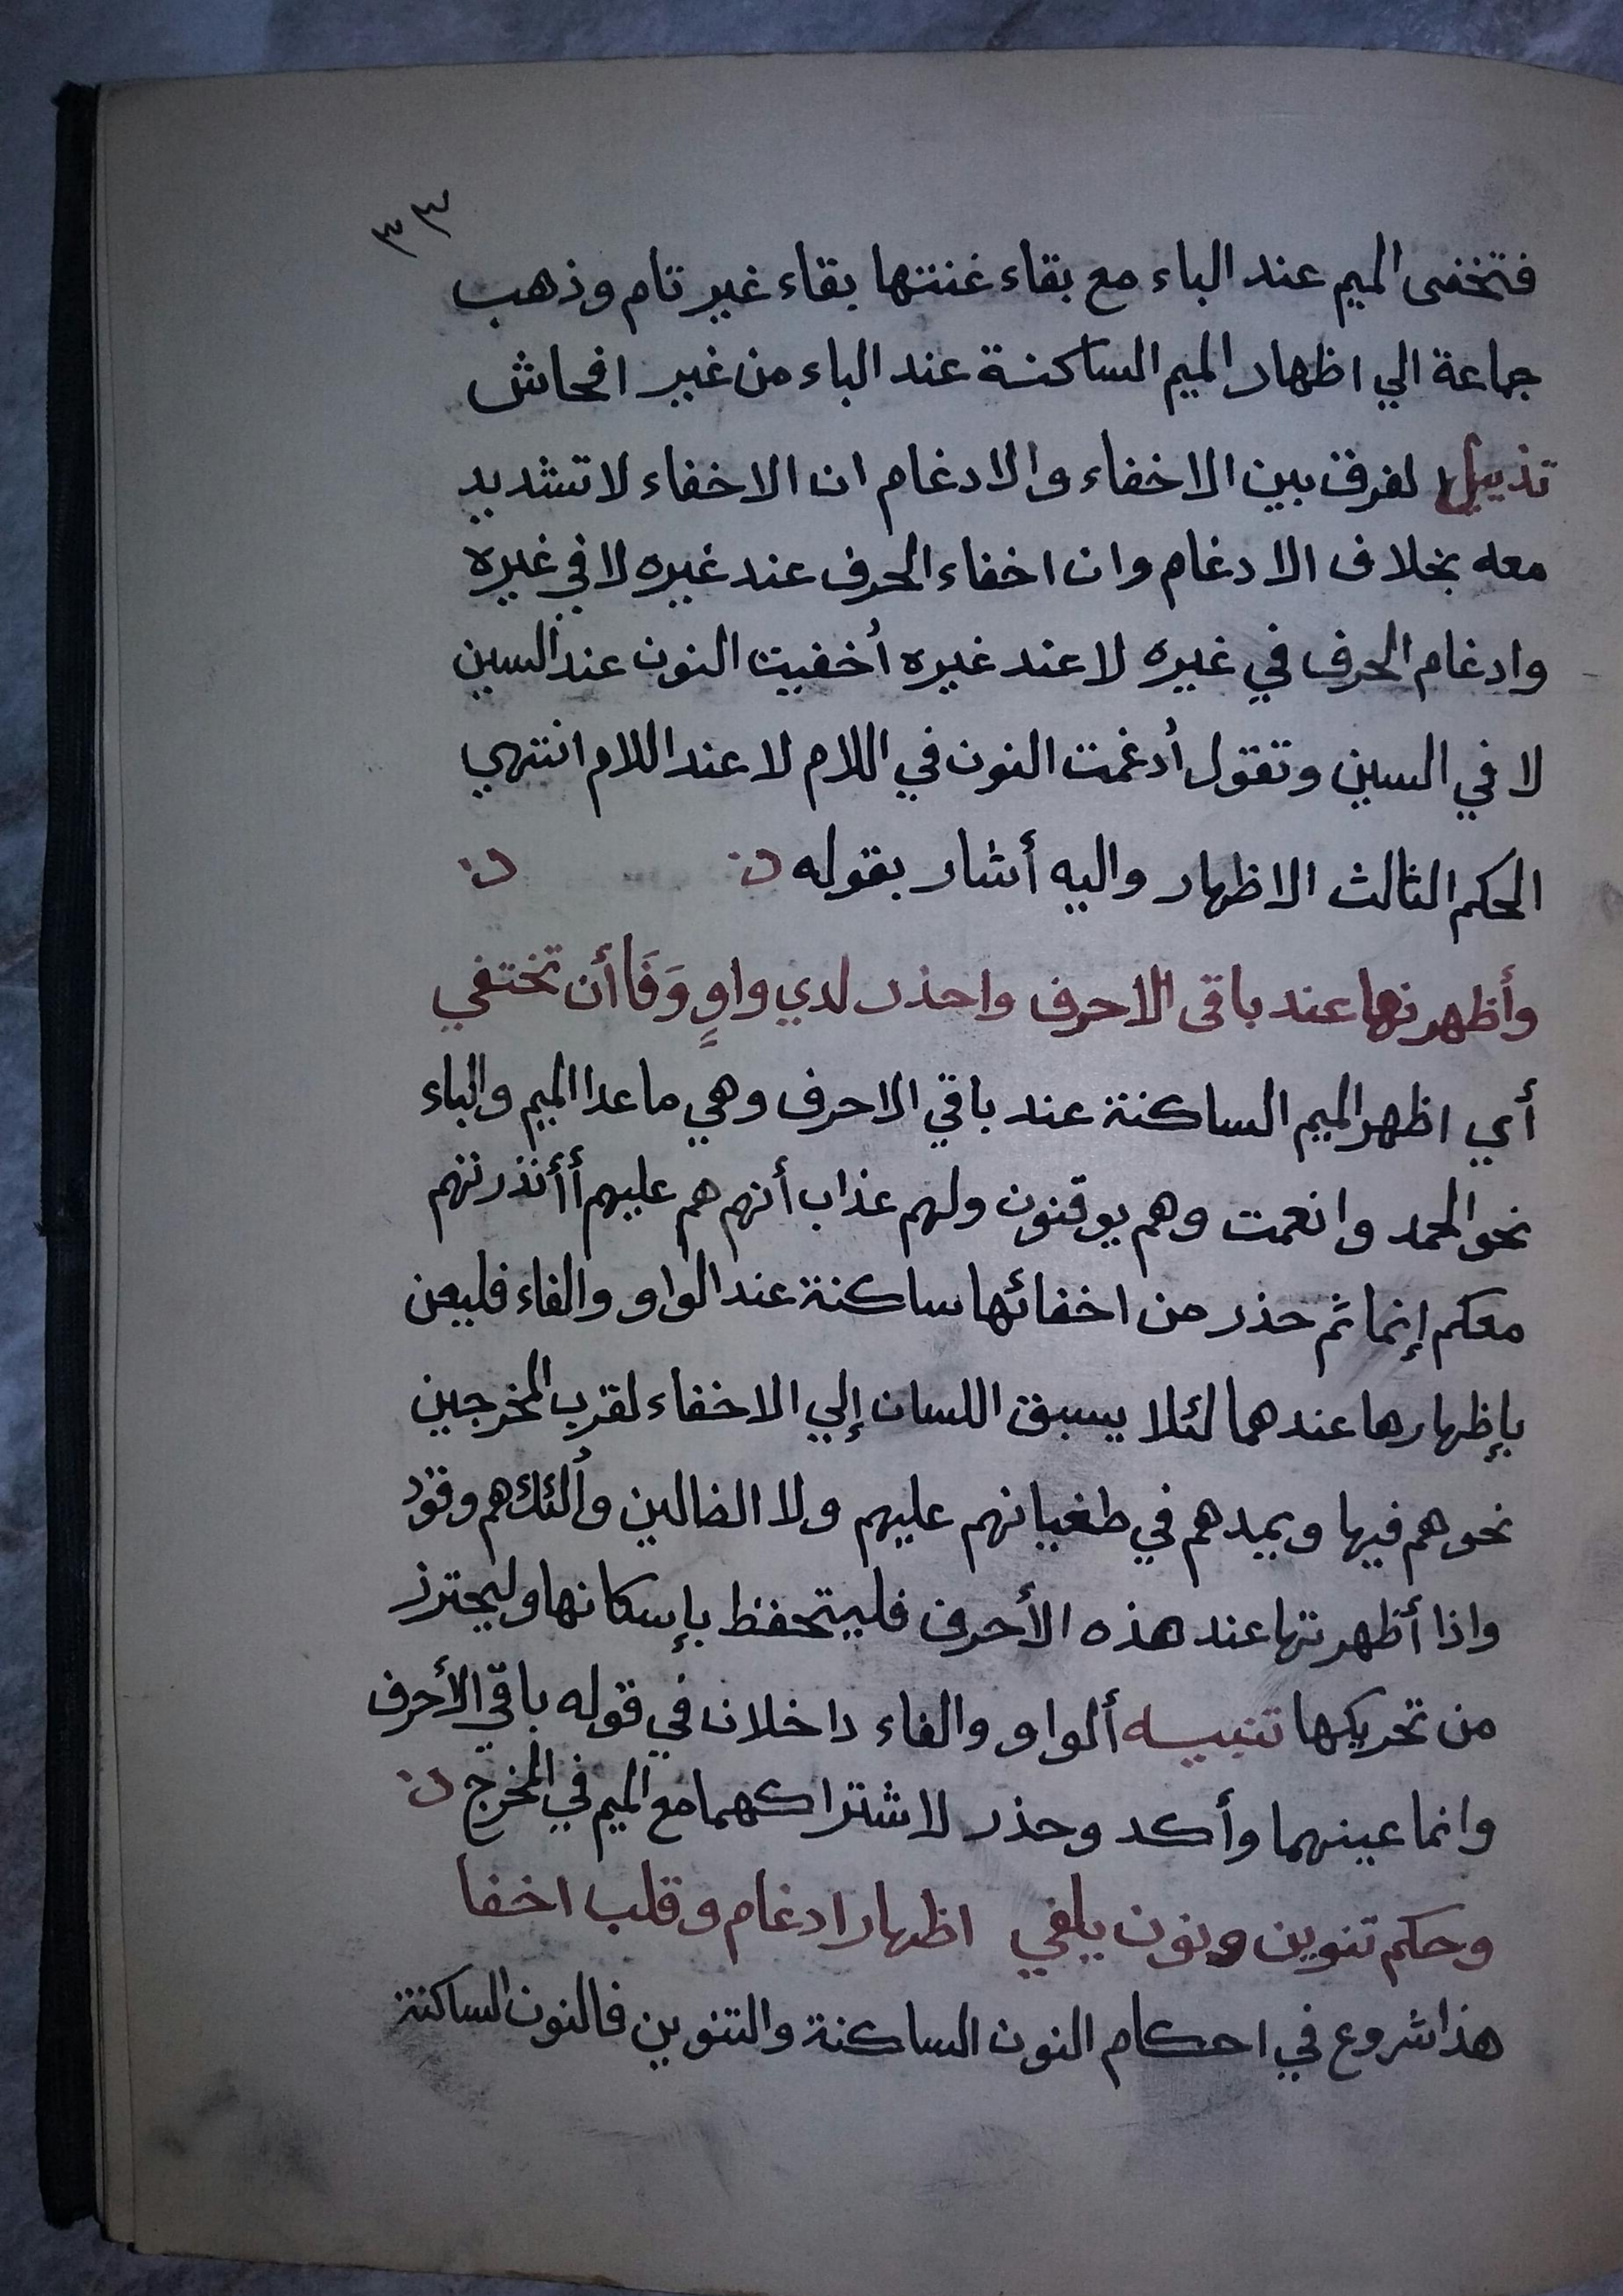 ٣٣
فتخفى الميم عند الباء مع بقاء غنتها بقاء غير تام وذهب
جماعة الي اظهار الميم الساكنة عند الباء من غير افحاش
تذييل لفرق بين الاخفاء والادغام ان الاخفاء لا تشديد
معه بخلاف الادغام وان اخفاء الحرف عند غيره لا في غيره
وادغام الحرف في غيره لا عند غيره أخفيت النون عند السين
لا في السين وتقول أدغمت النون في اللام لا عند اللام انتهي
الحكم الثالث الاظهار واليه أشار بقوله
وأظهرنها عند باقى الاحرف واحذر لدي واوٍ وَفَا أن تختفي
أي اظهر الميم الساكنة عند باقي الاحرف وهي ما عدا الميم والباء
نحو الحمد وانعمت وهم يوقنون ولهم عذاب أنهم هم عليهم أأنذرتهم
معكم إنما ثم حذر من اخفائها ساكنة عند الواو والفاء فليعن
بإظهارها عندهما لئلا يسبق اللسان إلي الاخفاء لقرب المخرجين
نحو هم فيها ويمدهم في طغيانهم عليهم ولا الضالين وألئك هم وقود
واذا أظهرتها عند هذه الأحرف فليتحفظ بإسكانها وليحترز
من تحريكها تنبيه ألواو والفاء داخلان في قوله باقي الأحرف
وانما عينهما وأكد وحذر لاشتراكهما مع الميم في المخرج
وحكم تنوين ونون يلفي اظهار ادغام وقلب اخفا
هذا شروع في احكام النون الساكنة والتنوين فالنون الساكنة